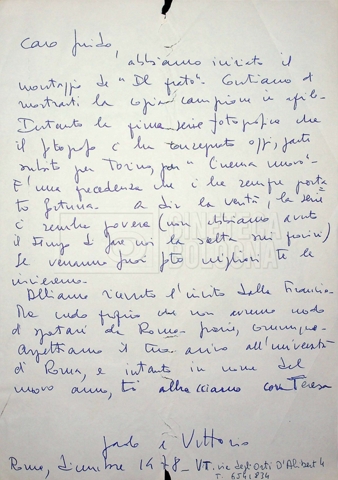 Caro Guido,
abbiamo iniziato il
montaggio de "Il prato". Contiamo di
mostrarti la copia campione in aprile.
Intanto la prima serie fotografica che
il fotografo ci ha consegnato oggi, parte
subito per Torino, per "Cinema nuovo".
E' una precedenza che ci ha sempre porta
to fortuna. A dir la verità, la serie
ci sembra povera (non abbiamo avuto
il tempo di far noi la scelta sui provini)
Se verranno fuori foto migliori te le
invieremo.
Abbiamo ricevuto l'invito dalla Francia.
Ma credo proprio che non avremo modo
di spostarci da Roma. Forse, comunque
aspettiamo il tuo arrivo all'università
di Roma, e intanto in nome del
nuovo anno, ti abbracciamo con Teresa
Paolo e Vittorio
Roma, dicembre 1978 - VT. via degli Orti D'Alibert 4
T. 6541834
CINETECA
BOLOGNA